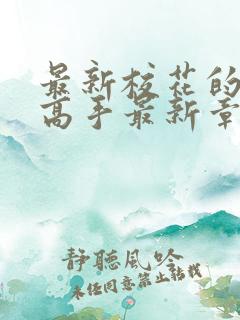 最新校花的
高手最新章
静聽風吟
未经同意禁止转载